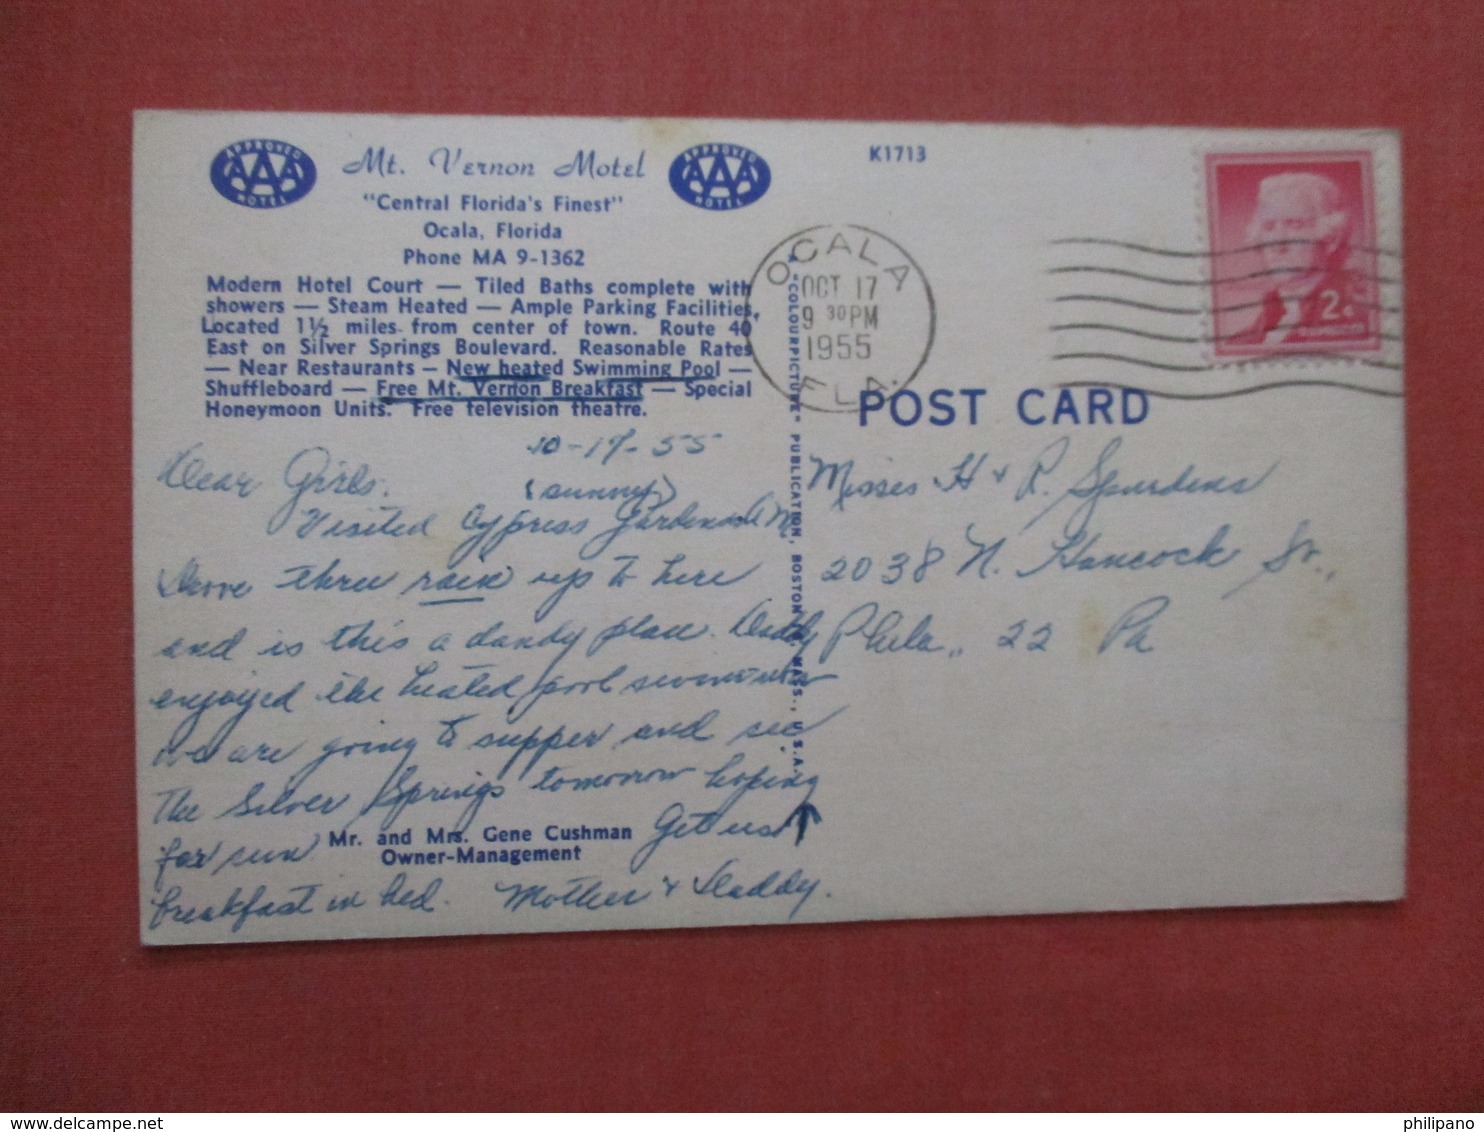 APPROVED AAA MOTEL
Mt. Vernon Motel
APPROVED AAA MOTEL
"Central Florida's Finest"
Ocala, Florida
Phone MA 9-1362
Modern Hotel Court — Tiled Baths complete with
showers — Steam Heated — Ample Parking Facilities.
Located 1½ miles from center of town. Route 40
East on Silver Springs Boulevard. Reasonable Rates
— Near Restaurants — New heated Swimming Pool —
Shuffleboard — Free Mt. Vernon Breakfast — Special
Honeymoon Units. Free television theatre.
10-17-55
Dear Girls. (sunny)
Visited Cypress Gardens A.M.
Drove thru rain up to here
and is this a dandy place. Daddy
enjoyed the heated pool
we are going to supper and see
the Silver Springs tomorrow hoping
for sun. Get us ↑
breakfast in bed. Mother & Daddy.
Mr. and Mrs. Gene Cushman
Owner-Management
K1713
A "COLOURPICTURE" PUBLICATION, BOSTON, MASS., U.S.A.
OCALA
OCT 17
9 30 PM
1955
FLA.
2¢
POST CARD
Misses H & R.
2038 N. Hancock St.,
Phila., 22 Pa
philipano